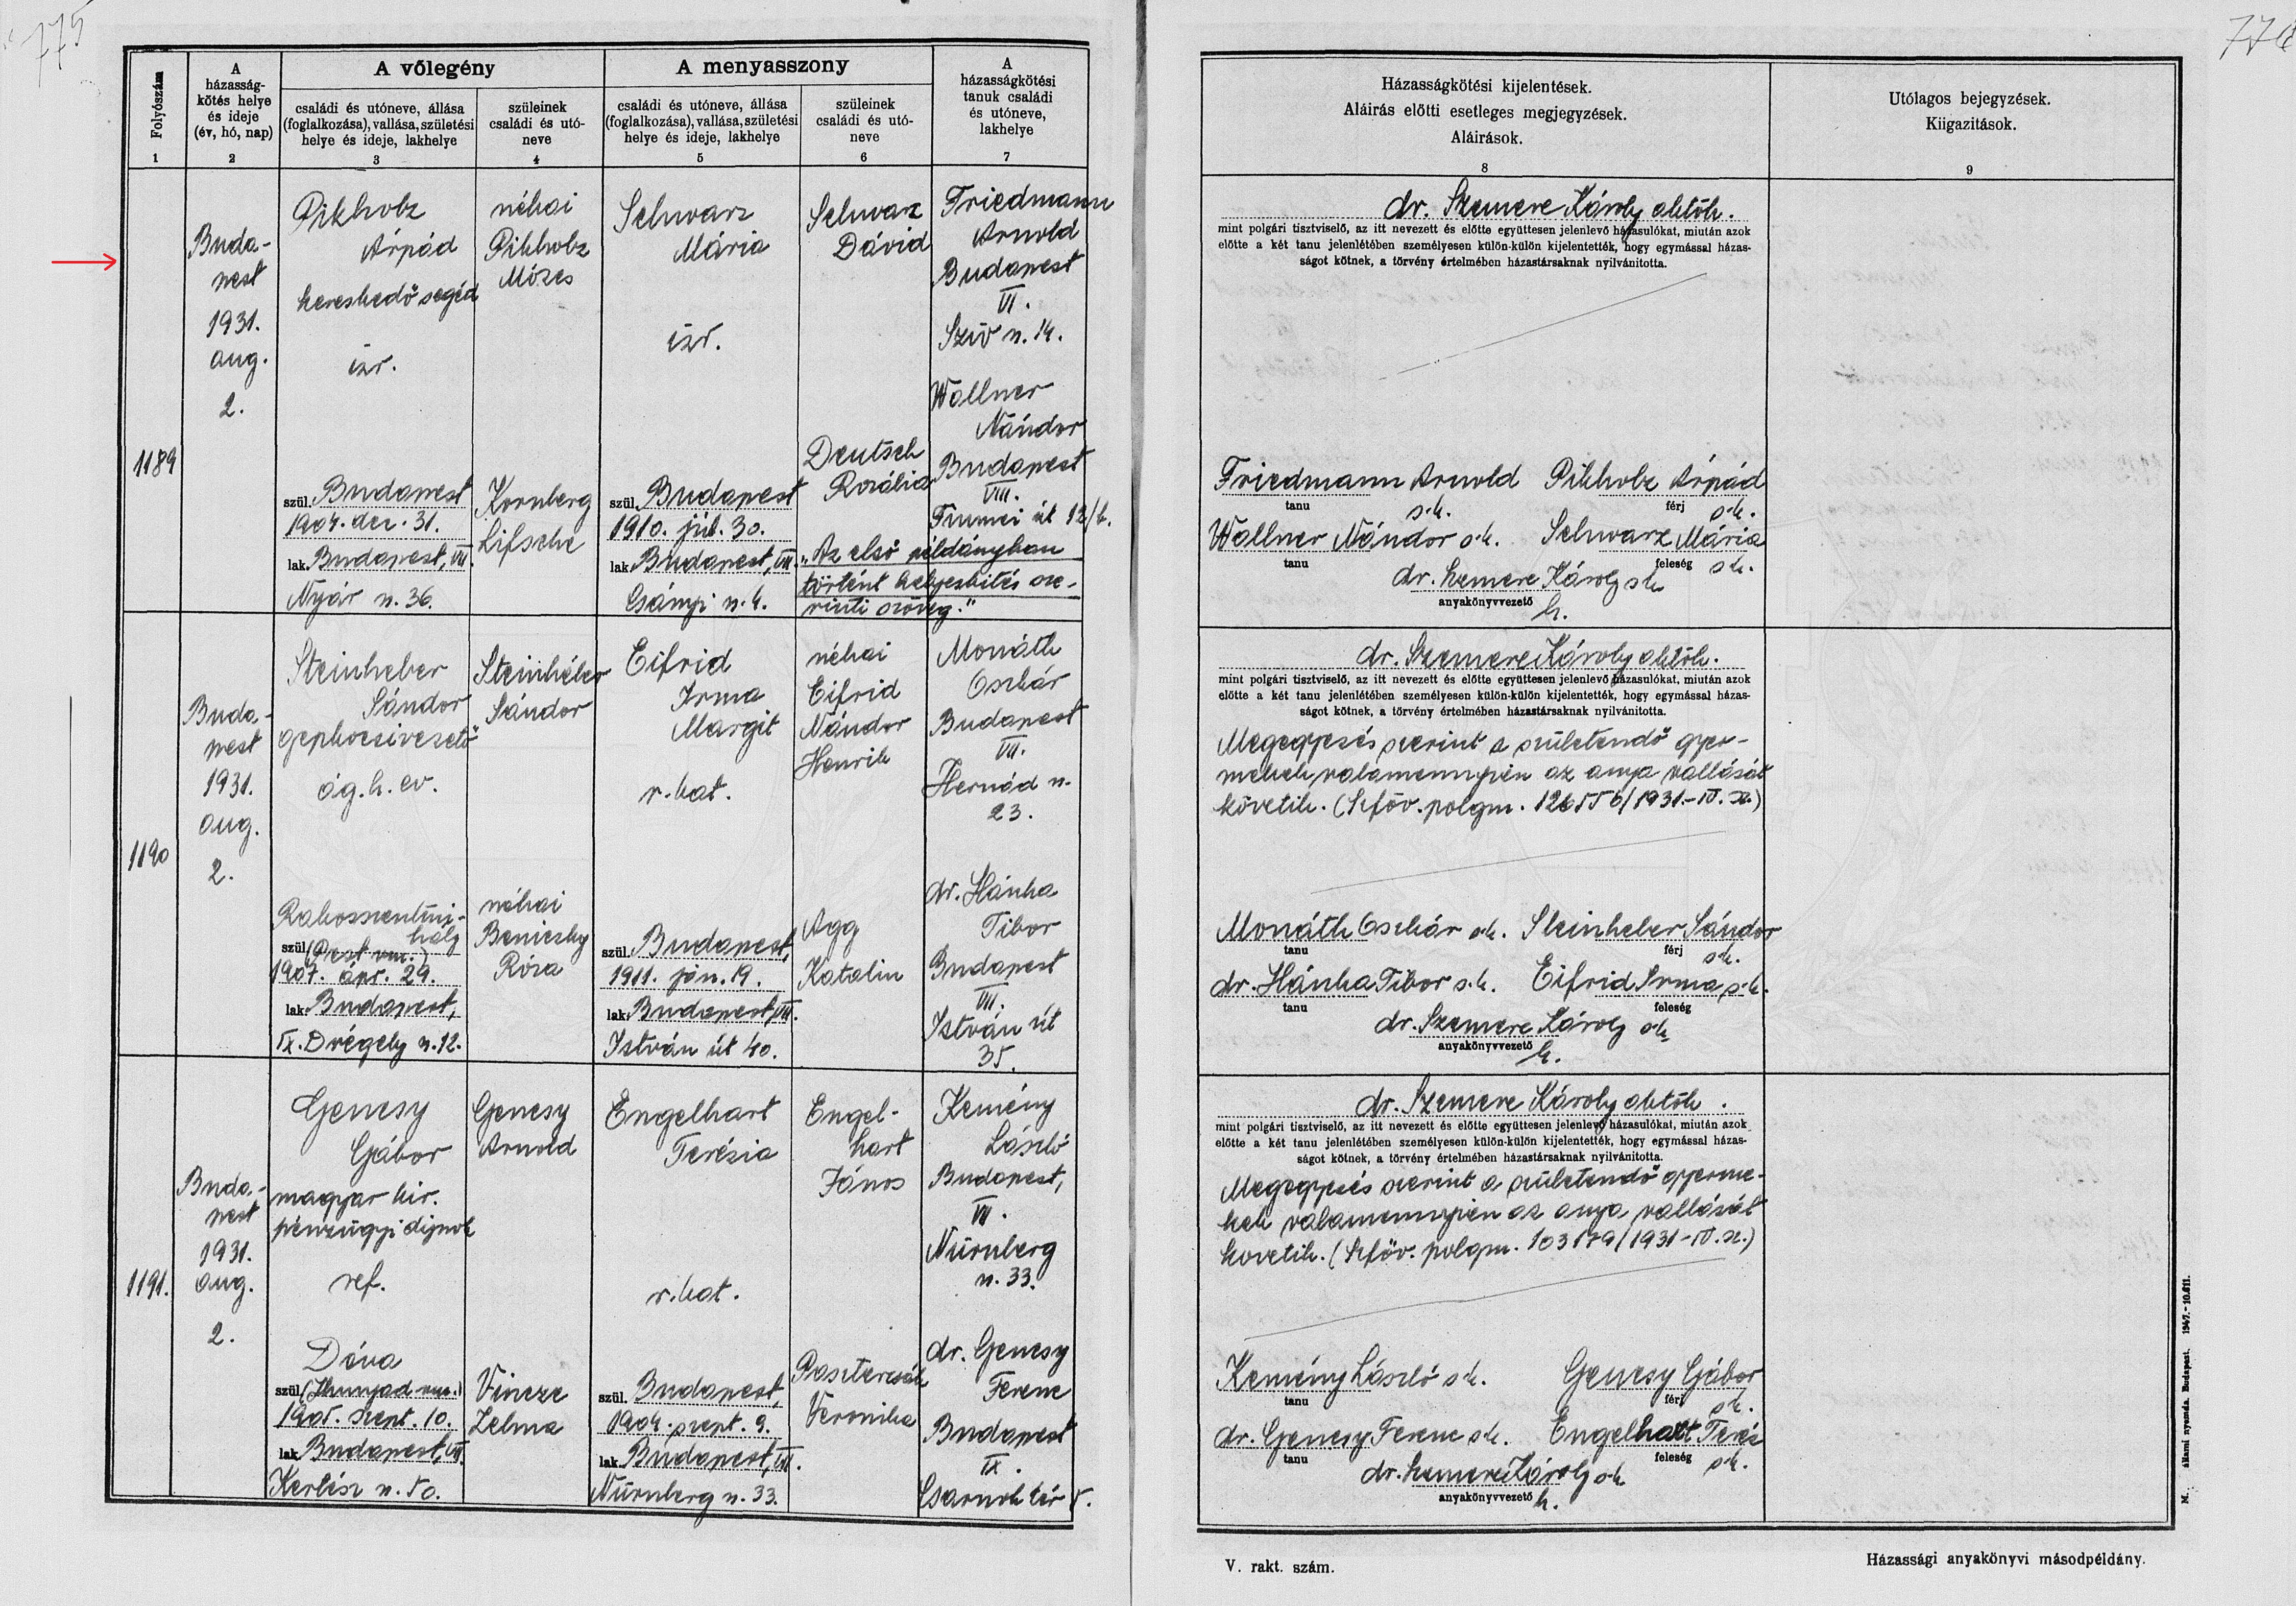 775
776
Folyószám
A házasság-
kötés helye
és ideje
(év, hó, nap)
A vőlegény
A menyasszony
A
házasságkötési
tanuk családi
és utóneve,
lakhelye
családi és utóneve, állása
(foglalkozása), vallása, születési
helye és ideje, lakhelye
szüleinek
családi és utó-
neve
családi és utóneve, állása
(foglalkozása), vallása, születési
helye és ideje, lakhelye
szüleinek
családi és utó-
neve
1 2 3 4 5 6 7
Házasságkötési kijelentések.
Aláírás előtti esetleges megjegyzések.
Aláírások.
8
Utólagos bejegyzések.
Kiigazitások.
9
1189
Buda-
pest
1931.
aug.
2.
Pikholz
Árpád
kereskedő segéd
izr.
szül. Budapest
1904. dec. 31.
lak. Budapest, VII.
Nyár u. 36.
néhai
Pikholz
Mózes
Kornberg
Lifsche
Schwarz
Mária
izr.
szül. Budapest
1910. júl. 30.
lak. Budapest, VII.
Csányi u. 4.
Schwarz
Dávid
Deutsch
Rozália
Friedmann
Arnold
Budapest
VI.
Szív u. 14.
Wollner
Nándor
Budapest
VIII.
Fiumei út 12/b.
"Az első példányban
történt helyesbítés sze-
rinti szöveg."
dr. Szemere Károly
mint polgári tisztviselő, az itt nevezett és előtte együttesen jelenlevő házasulókat, miután azok
előtte a két tanu jelenlétében személyesen külön-külön kijelentették, hogy egymással házas-
ságot kötnek, a törvény értelmében házastársaknak nyilvánitotta.
Friedmann Arnold s.k. Pikholz Árpád s.k.
tanu férj
Wollner Nándor s.k. Schwarz Mária s.k.
tanu feleség
dr. Szemere Károly s.k.
anyakönyvvezető
h.
1190
Buda-
pest
1931.
aug.
2.
Steinheber
Sándor
gépkocsivezető
ág. h. ev.
Rákosszentmi-
hály
szül. (Pest vm.)
1907. ápr. 29.
lak. Budapest,
IX. Drégely u. 12.
Steinhéber
Sándor
néhai
Beniczky
Róza
Eifrid
Irma
Margit
r. kat.
szül. Budapest,
1911. jún. 19.
lak. Budapest, VII.
István út 40.
néhai
Eifrid
Nándor
Henrik
Agg
Katalin
Monáth
Oszkár
Budapest
VII.
Hernád u.
23.
dr. Hánka
Tibor
Budapest
VII.
István út
35.
dr. Szemere Károly
mint polgári tisztviselő, az itt nevezett és előtte együttesen jelenlevő házasulókat, miután azok
előtte a két tanu jelenlétében személyesen külön-külön kijelentették, hogy egymással házas-
ságot kötnek, a törvény értelmében házastársaknak nyilvánitotta.
Megegyezés szerint a születendő gyer-
mekek valamennyien az anya vallását
követik. (Szföv. polgm.
Monáth Oszkár s.k. Steinheber Sándor s.k.
tanu férj
dr. Hánka Tibor s.k. Eifrid Irma s.k.
tanu feleség
dr. Szemere Károly s.k.
anyakönyvvezető
h.
1191.
Buda-
pest
1931.
aug.
2.
Genesy
Gábor
magyar kir.
pénzügyi díjnok
ref.
Déva
szül. (Hunyad vm.)
1905. szept. 10.
lak. Budapest, VII.
Kertész u. 50.
Genesy
Arnold
Vincze
Zelma
Engelhart
Terézia
r. kat.
szül. Budapest,
1904. szept. 9.
lak. Budapest, VII.
Nürnberg u. 33.
Engel-
hart
János
Veronika
Kemény
László
Budapest,
VII.
Nürnberg
u. 33.
dr. Genesy
Ferenc
Budapest
IX.
Csarnok tér 5.
dr. Szemere Károly
mint polgári tisztviselő, az itt nevezett és előtte együttesen jelenlevő házasulókat, miután azok
előtte a két tanu jelenlétében személyesen külön-külön kijelentették, hogy egymással házas-
ságot kötnek, a törvény értelmében házastársaknak nyilvánitotta.
Megegyezés szerint a születendő gyerme-
kek valamennyien az anya vallását
követik. (Szföv. polgm.
Kemény László s.k. Genesy Gábor s.k.
tanu férj
dr. Genesy Ferenc s.k. Engelhart Teréz s.k.
tanu feleség
dr. Szemere Károly s.k.
anyakönyvvezető
h.
V. rakt. szám.
Házassági anyakönyvi másodpéldány.
M. állami nyomda. Budapest. 1947. - 10.611.